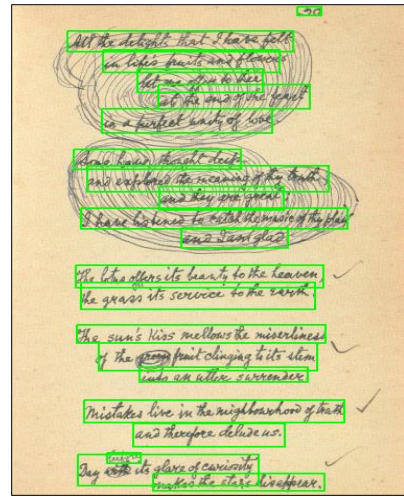 20
All the delights that I have felt
in life's fruits and flowers
let me offer to thee
at the end of the feast
in a perfect unity of love
Some have thought deep
and explored the meaning of thy truth
and they are great;
I have listened to catch the music of thy play
and I am glad
The lotus offers its beauty to the heaven
the grass its service to the earth.
The sun's kiss mellows the miserliness
of the green fruit clinging to its stem
into an utter surrender
Mistakes live in the neighbourhood of truth
and therefore delude us.
Day its glare of curiosity
makes the stars disappear.